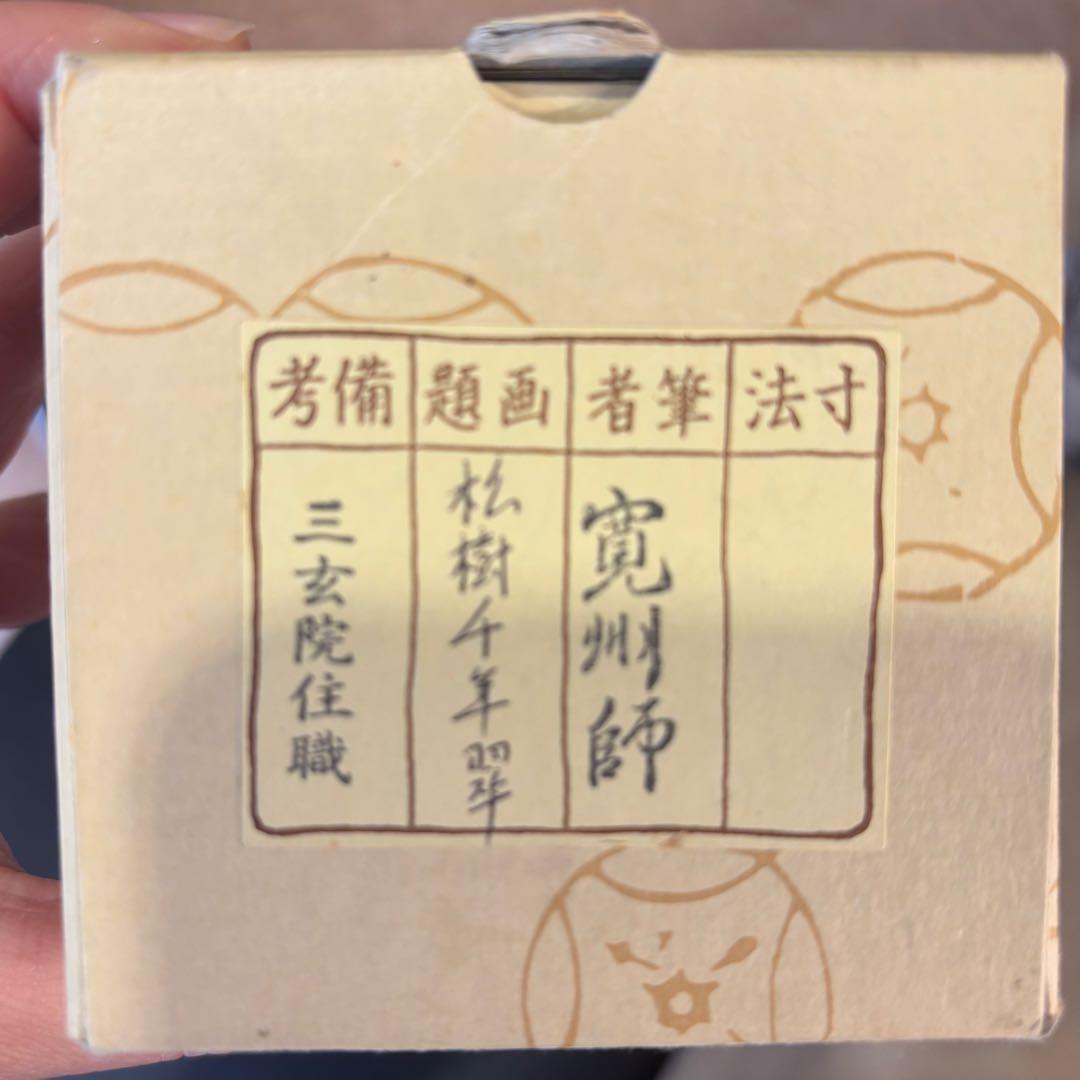 寸法
筆者
画題
備考
寛州師
松樹千年翠
三玄院住職